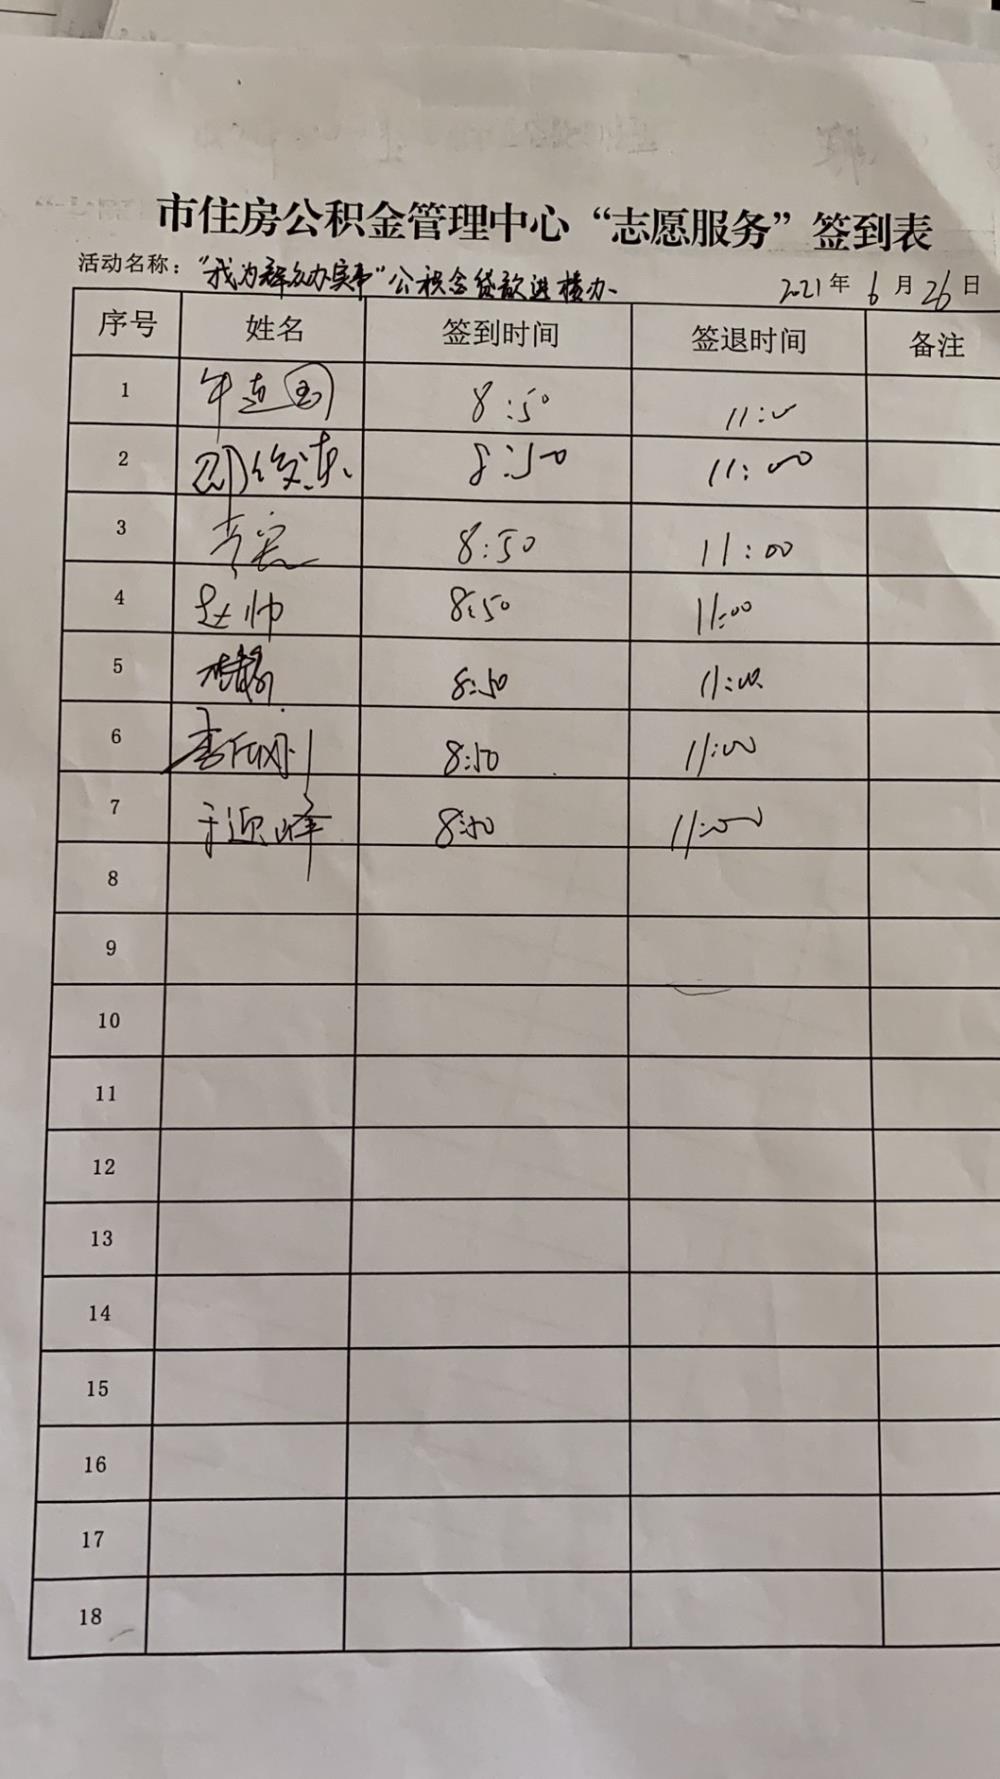 市住房公积金管理中心“志愿服务”签到表
活动名称：“我为群众办实事”公积金贷款进楼办 2021年6月26日
序号 姓名 签到时间 签退时间 备注
1 牛连国 8:50 11:00
2 8:50 11:00
3 8:50 11:00
4 赵帅 8:50 11:00
5 8:50 11:00
6 8:50 11:00
7 于迎峰 8:50 11:00
8
9
10
11
12
13
14
15
16
17
18